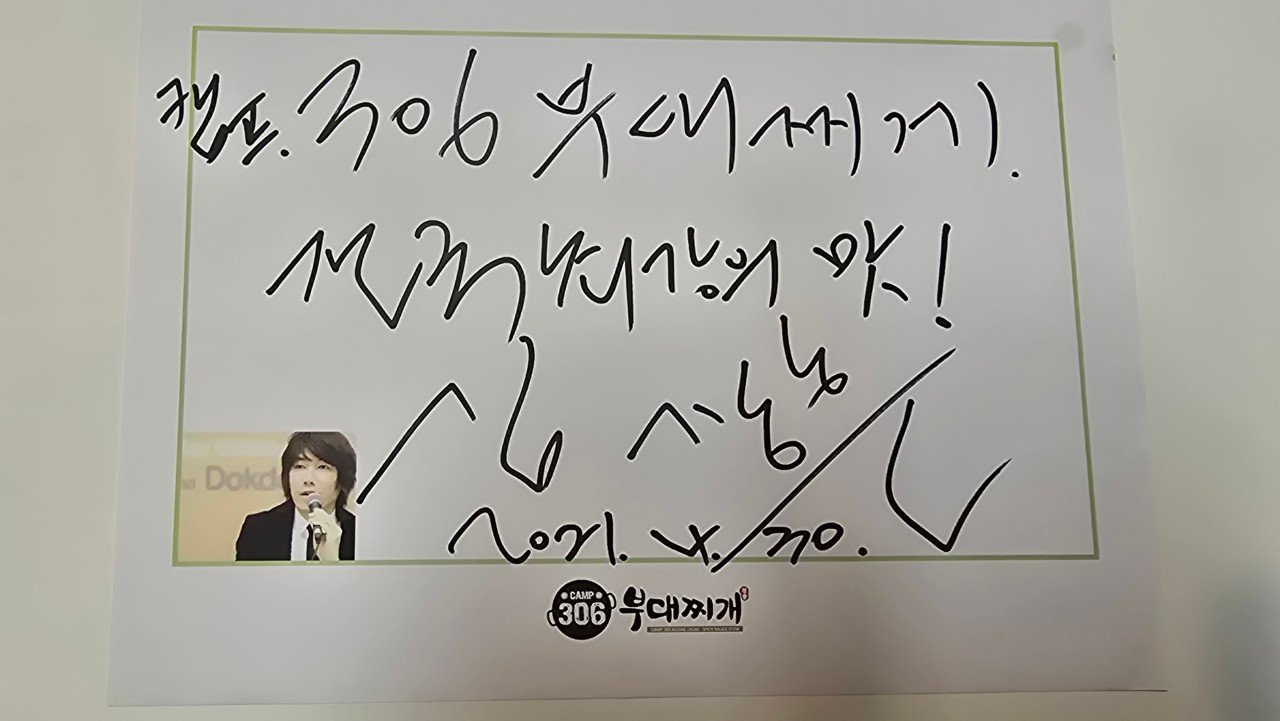 캠프. 306 부대찌개.
전국최강의 맛!
2021. 4. 30.
Dokd
CAMP
306 부대찌개